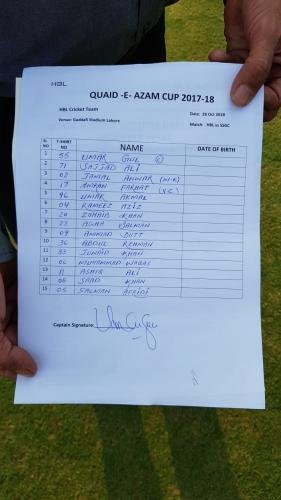 HBL
QUAID -E- AZAM CUP 2017-18
HBL Cricket Team
Date: 28 Oct 2018
Venue: Gaddafi Stadium Lahore
Match: HBL vs SSGC
S: NO T-SHIRT NO NAME DATE OF BIRTH
1 55 UMAR GUL (C)
2 71 SAJJAD ALI
3 02 JAMAL ANWAR (W.K)
4 17 IMRAN FARHAT (V.C)
5 96 UMAR AKMAL
6 04 RAMEEZ AZIZ
7 20 ZOHAIB KHAN
8 23 AGHA SALMAN
9 09 AMMAD BUTT
10 36 ABDUL REHMAN
11 83 JUNAID KHAN
12 06 MUHAMMAD WAQAS
13 11 ASHIR ALI
14 08 SAAD KHAN
15 05 SALMAN AFRIDI
Captain Signature: